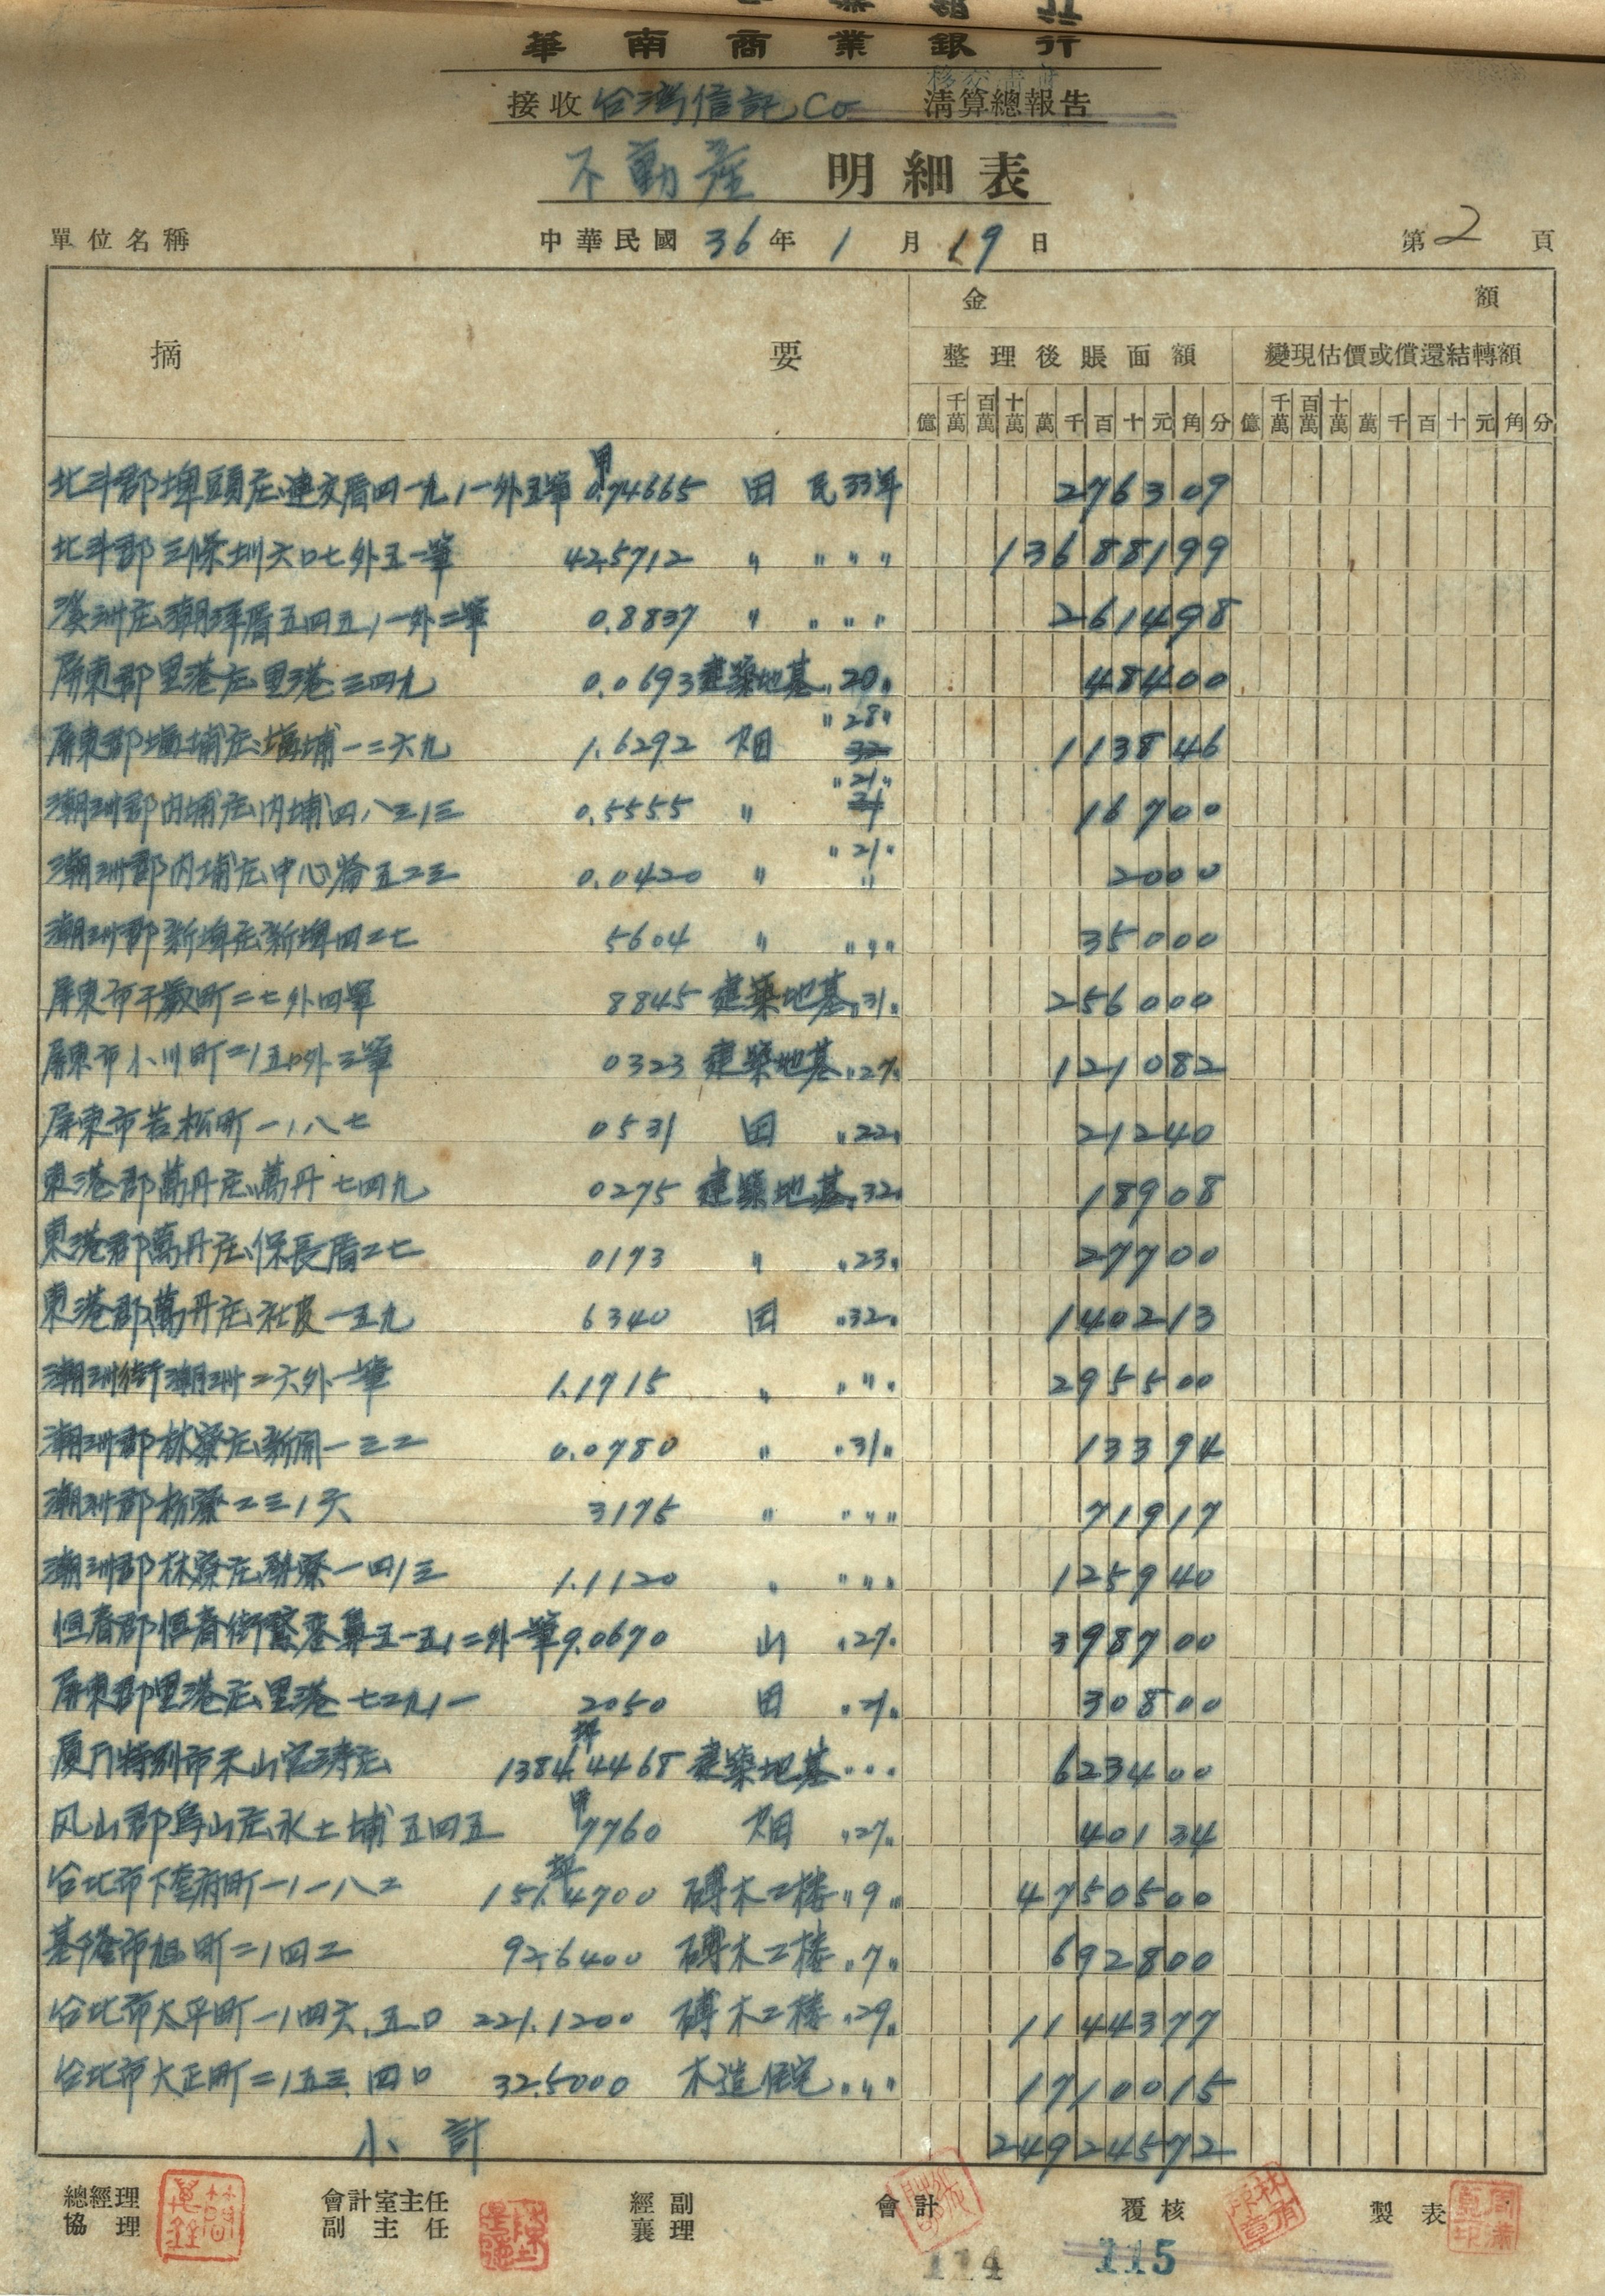 華南商業銀行
接收 台灣信託Co 清算總報告
不動產 明細表
單位名稱 中華民國 36 年 1 月 19 日 第 2 頁
摘要 金額
整理後賬面額 變現估價或償還結轉額
億 千萬 百萬 十萬 萬 千 百 十 元 角 分 億 千萬 百萬 十萬 萬 千 百 十 元 角 分
北斗郡埤頭庄連交厝四一九ノ一外五筆 甲 0.74665 田 民33年 276309
北斗郡三條圳六〇七外五一筆 42.5712 〃 〃〃〃 13688199
溪洲庄潮洋厝五四五ノ一外二筆 0.8837 〃 〃〃〃 261498
屏東郡里港庄里港三四九 0.0693 建築地基 〃20〃 48400
屏東郡塩埔庄塩埔一二六九 1.6292 畑 〃28〃 113846
潮洲郡內埔庄內埔四八三ノ三 0.5555 〃 〃21〃 16700
潮洲郡內埔庄中心崙五二三 0.0420 〃 〃21〃 2000
潮洲郡新埤庄新埤四二七 5604 〃 〃〃〃 35000
屏東市千歲町二七外四筆 8845 建築地基 〃31〃 256000
屏東市小川町二ノ五〇外三筆 0323 建築地基 〃27〃 121082
屏東市若松町一ノ八七 0531 田 〃22〃 21240
東港郡萬丹庄萬丹七四九 0275 建築地基 〃32〃 18908
東港郡萬丹庄保長厝二七 0173 〃 〃23〃 27700
東港郡萬丹庄社皮一五九 6340 田 〃32〃 140213
潮洲街潮洲二六外一筆 1.1715 〃 〃〃〃 295500
潮洲郡林寮庄新開一三二 0.0780 〃 〃31〃 13394
潮洲郡枋寮二三ノ六 3175 〃 〃〃〃 71917
潮洲郡林寮庄寮一四ノ三 1.1120 〃 〃〃〃 125940
恒春郡恒春街鵞鑾鼻五一五ノ二外一筆 9.0670 山 〃27〃 398700
屏東郡里港庄里港七二九ノ一 2050 田 〃21〃 30800
厦門特別市禾山宮庄 坪 1384.4468 建築地基 〃〃〃 623400
凤山郡鳥山庄水土埔五四五 甲 7760 畑 〃27〃 40134
台北市下奎府町一ノ一八二 坪 151.4700 磚木二楼 〃9〃 4750500
基隆市旭町二ノ四二 92.6400 磚木二楼 〃7〃 692800
台北市太平町一ノ四六.五〇 221.1200 磚木二楼 〃29〃 1144377
台北市大正町二ノ五三.四〇 32.5000 木造住宅 〃〃〃 1710015
小計 24924572
總經理 會計室主任 經副 會計 覆核 製表
協理 副主任 襄理
114 115